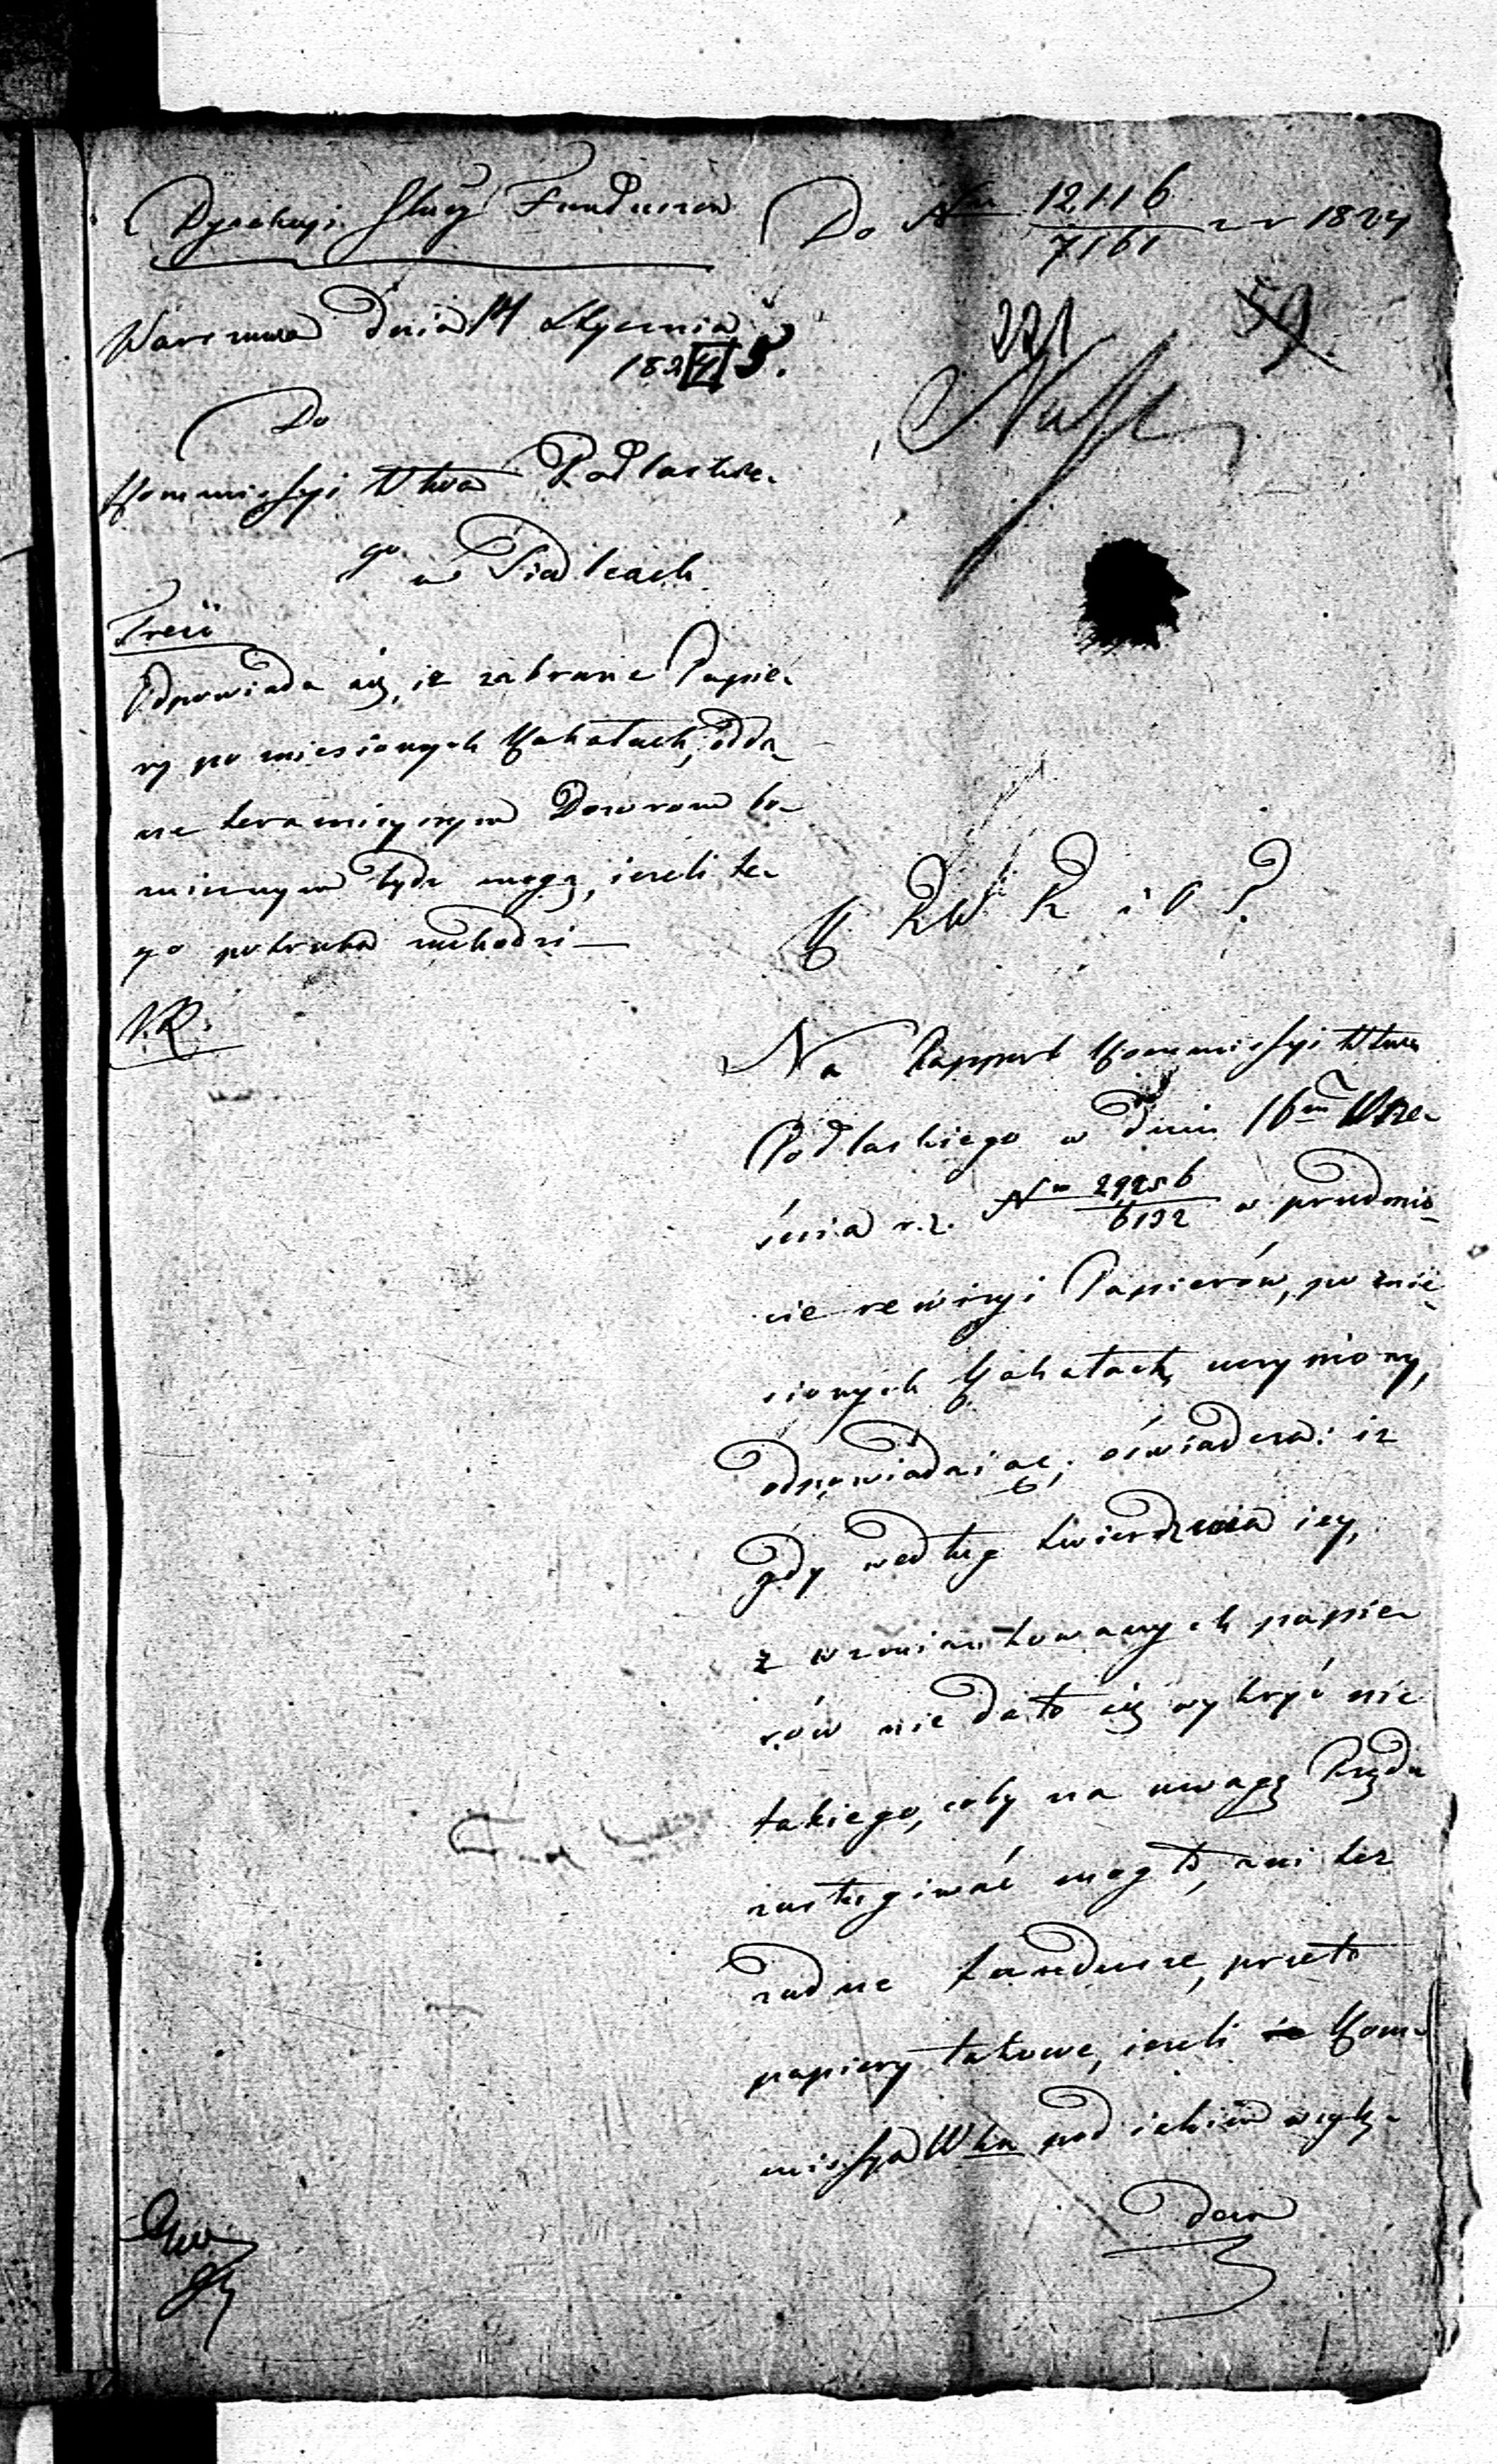 Dyrekcyi Służ. Funduszów
Do Nru 12,116/7161 z r 1824
Warszawa dnia 14 Stycznia
1824 5.
221
59
Do
Kommissyi Wtwa Podlaskie-
go w Siedlcach
Treść
Odpowiada się, iż zabrane Papie-
ry po zniesionych Kahałach, odda-
ne teraźnieyszym Dozorom bo-
żniczym bydź mogą, ieżeli te-
go potrzeba zachodzi —
K R W R i O P.
Na Rapport Kommissyi Wtwa
Podlaskiego w dniu 16m Wrze-
śnia r.z. Nro 29256/6132 w przedmio-
cie rewizyi Papierów, po znie-
sionych Kahałach, uczyniony,
odpowiadaiąc, oświadcza: iż
gdy według twierdzenia iey,
z wzmiankowanych papie-
rów nie dało się wykryć nic
takiego, coby na uwagę Rządu
zasługiwać mogło, ani też
żadne fundusze, przeto
papiery takowe, ieżeli ie Kom-
missya Wka pod iakim wzglę-
dem